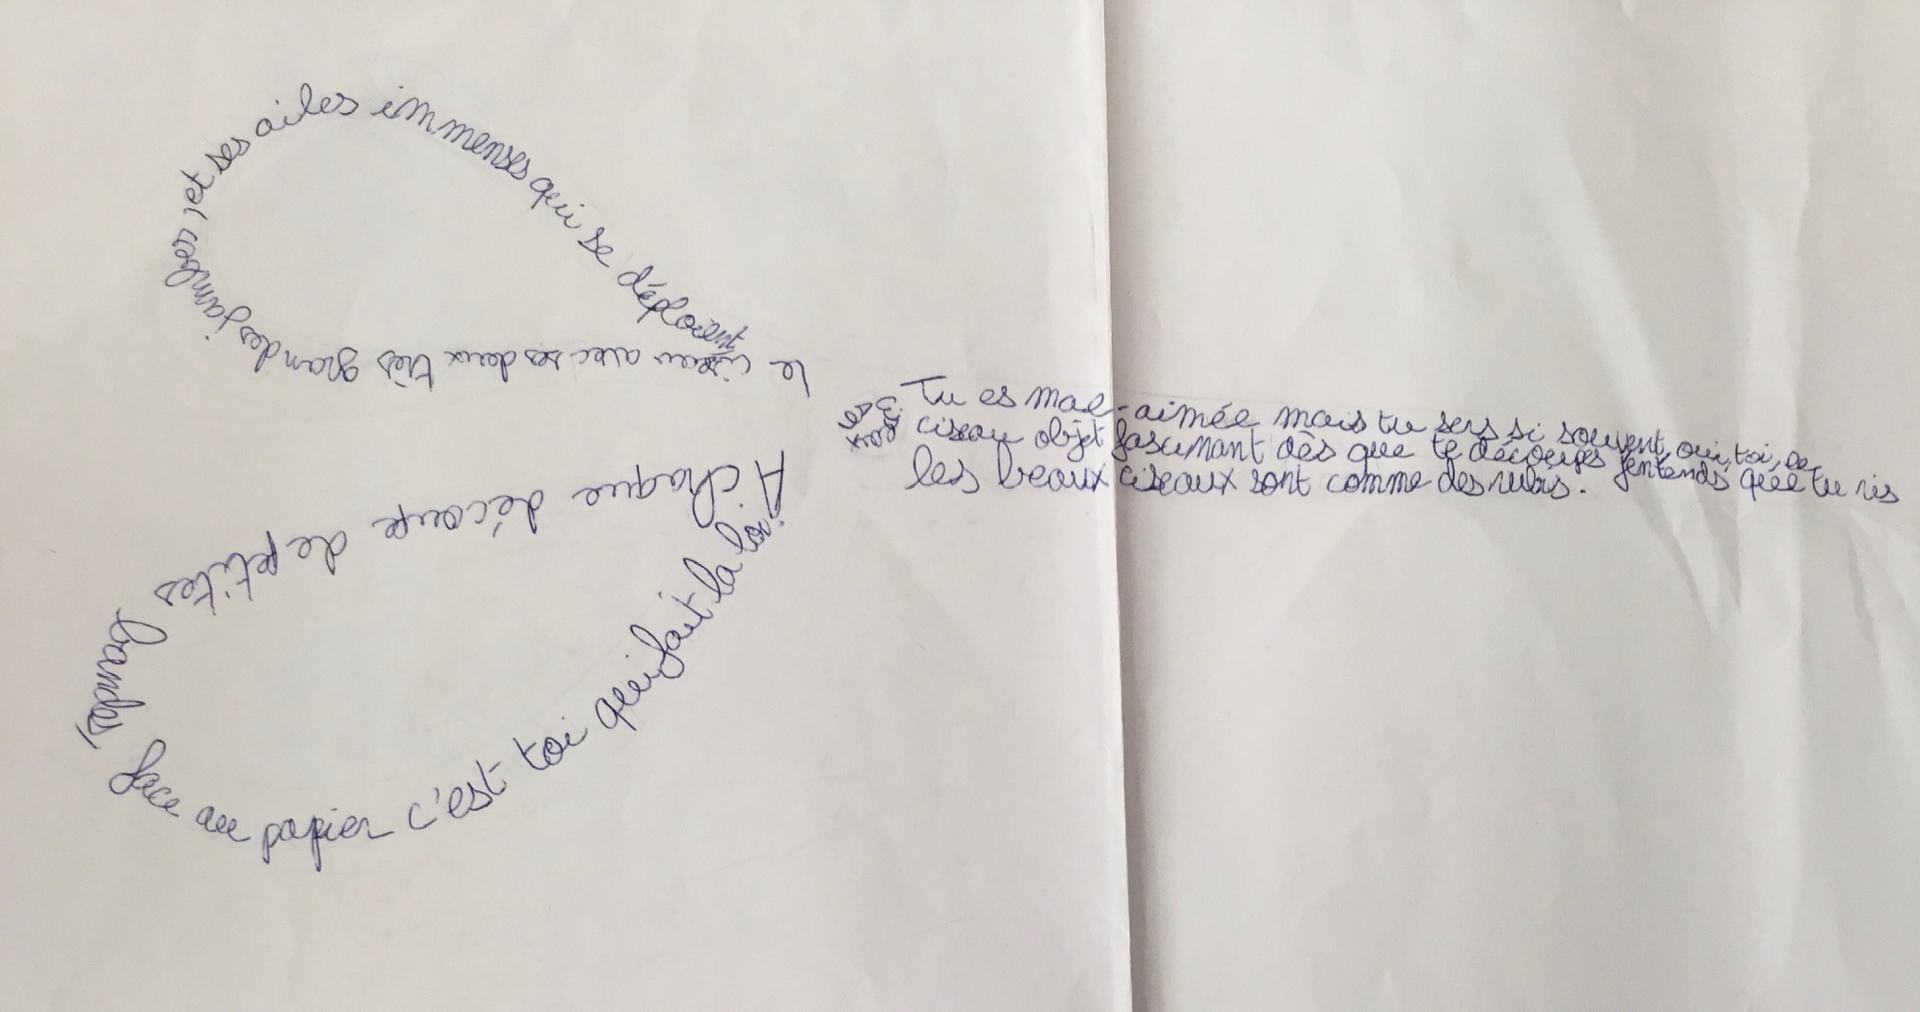 le ciseau avec ses deux très grandes jambes, et ses ailes immenses qui se déploient
A chaque découpe de petites bandes, face au papier c'est toi qui fait la loi.
Tu es mal-aimée mais tu sers si souvent, oui, toi, le
ciseau objet fascinant dès que te découpes j'entends que tu ris
les beaux ciseaux sont comme des rubis.